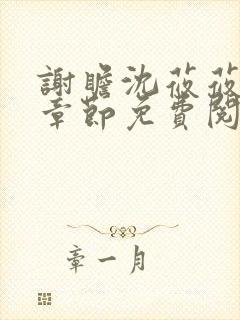 謝瞻沈莜莜
章節免費閱
章一月